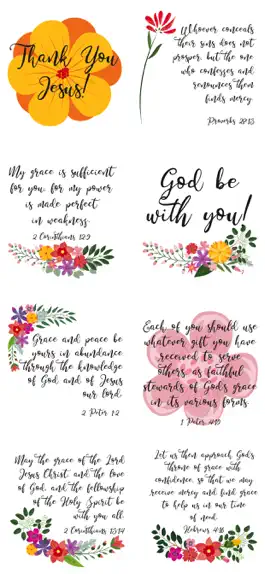 Thank You
Jesus!
Whoever conceals
their sins does not
prosper, but the one
who confesses and
renounces them
finds mercy.
Proverbs 28:13
My grace is sufficient
for you, for my power
is made perfect
in weakness.
2 Corinthians 12:9
God be
with you!
Grace and peace be
yours in abundance
through the knowledge
of God and of Jesus
our lord.
2 Peter 1:2
Each of you should use
whatever gift you have
received to serve
others, as faithful
stewards of God's grace
in its various forms.
1 Peter 4:10
May the grace of the Lord
Jesus Christ, and the love
of God, and the fellowship
of the Holy Spirit be
with you all.
2 Corinthians 13:14
Let us then approach God's
throne of grace with
confidence, so that we may
receive mercy and find grace
to help us in our time
of need.
Hebrews 4:16